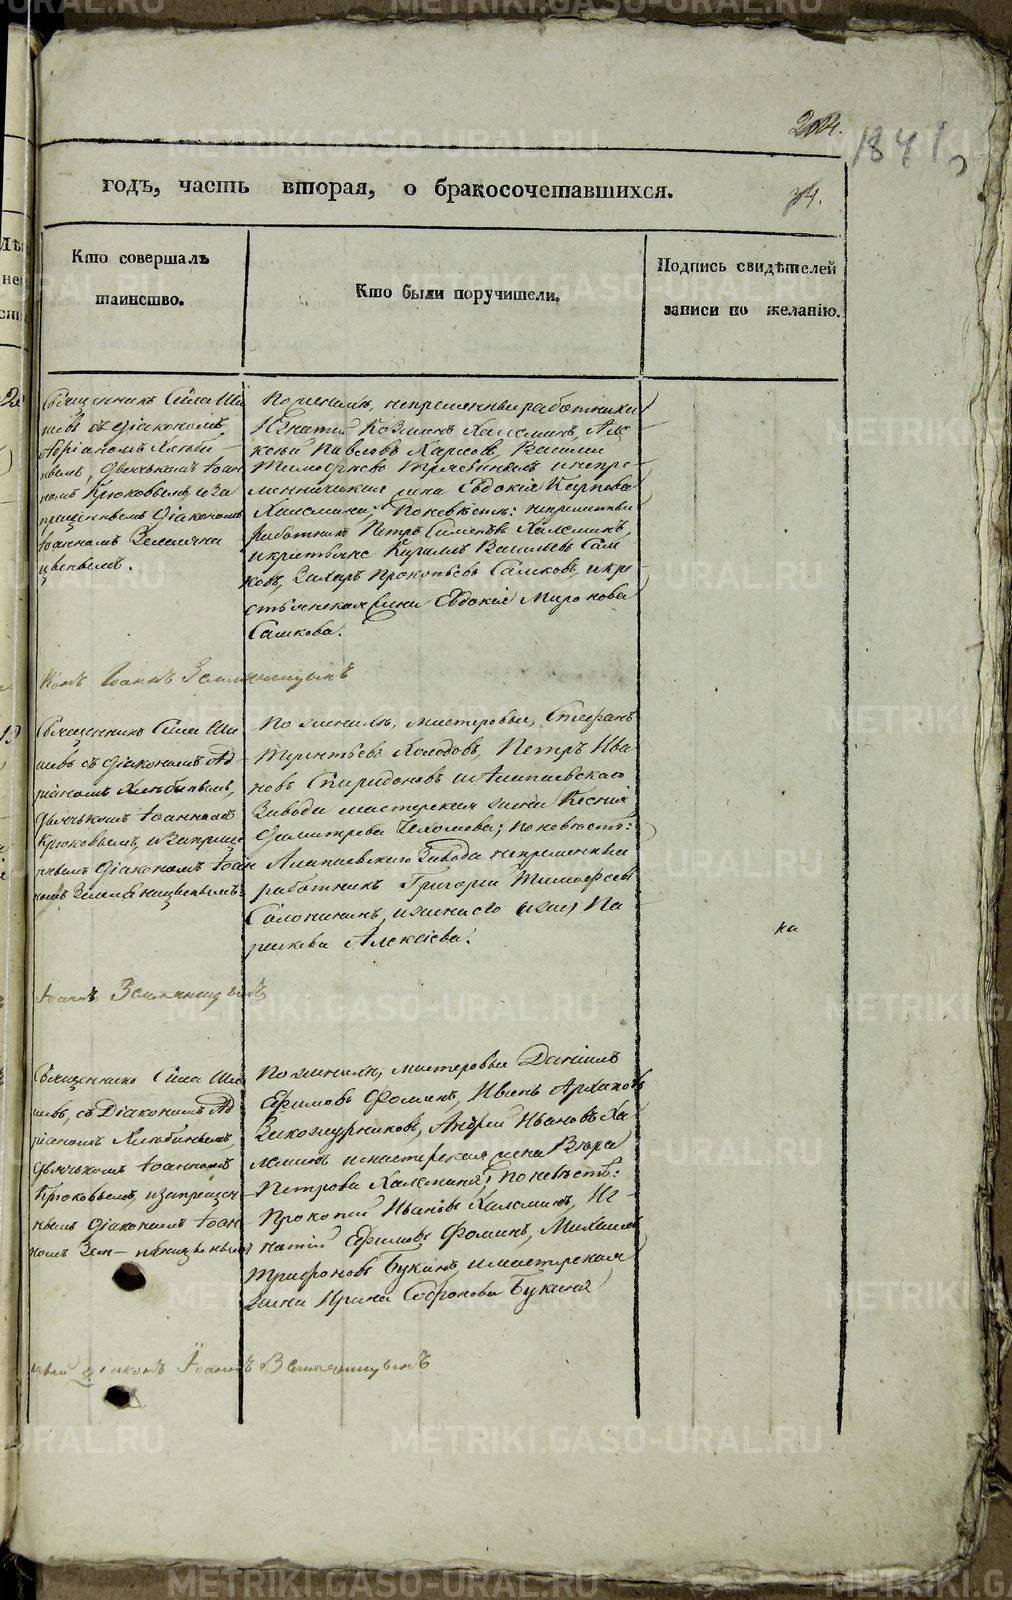 204.
1841,
годъ, часть вторая, о бракосочетавшихся.
34.
Кто совершалъ
таинство.
Кто были поручители.
Подпись свидѣтелей
записи по желанію.
Священникъ Сила Ши
съ діакономъ
Адріаномъ
дьячькомъ Іоан
номъ Крюковымъ, и за
прещеннымъ діакономъ
Іоанномъ Земляни
цынымъ.
По женихѣ, непременные работники
Игнатей Козминъ Халеминъ, Але
ксѣй Павловъ Василий
Тимофѣевъ и непре
менническая жена Евдокія Карпова
Халемина; По невѣстѣ: непременный
работникъ Петръ Халеминъ,
и крестьяне Кирилъ Васильевъ Сам
ковъ, Захаръ Прокопьевъ Самковъ, и кре
стьянская жена Евдокія Миронова
Самкова.
Іоаннъ Земляницынъ
Священникъ Сила Ши
съ діакономъ Ад
ріаномъ
дьячькомъ Іоанномъ
Крюковымъ, и запреще
ннымъ діакономъ Іоан
номъ Земляницынымъ.
По женихѣ, мастеровые, Стефанъ
Терентьевъ Холодовъ, Петръ Ива
новъ Спиридоновъ и Алапаевскаго
Завода мастерская жена Ксения
Димитрева по невѣстѣ:
Алапаевскаго Завода непременный
работникъ Григорий Тимофѣевъ
Солонининъ, и жена его Па
Алексѣева.
ка
Іоаннъ Земляницынъ
Священникъ Сила Ши
съ Діакономъ Ад
ріаномъ
дьячькомъ Іоанномъ
Крюковымъ, и запрещен
нымъ діаконамъ Іоан
номъ
По женихѣ; мастеровые Даніилъ
Ефимовъ Фоминъ, Иванъ
Закожурниковъ, Андрей Ивановъ Ха
леминъ и мастерская жена Вѣра
Петрова Халемина; По невѣстѣ:
Прокопий Ивановъ Халеминъ, Иг
натій Ефимовъ Фоминъ, Михаилъ
Трифоновъ Букинъ, и мастерская
жена Ирина Софронова Букина
діаконъ Іоаннъ Земляницынъ